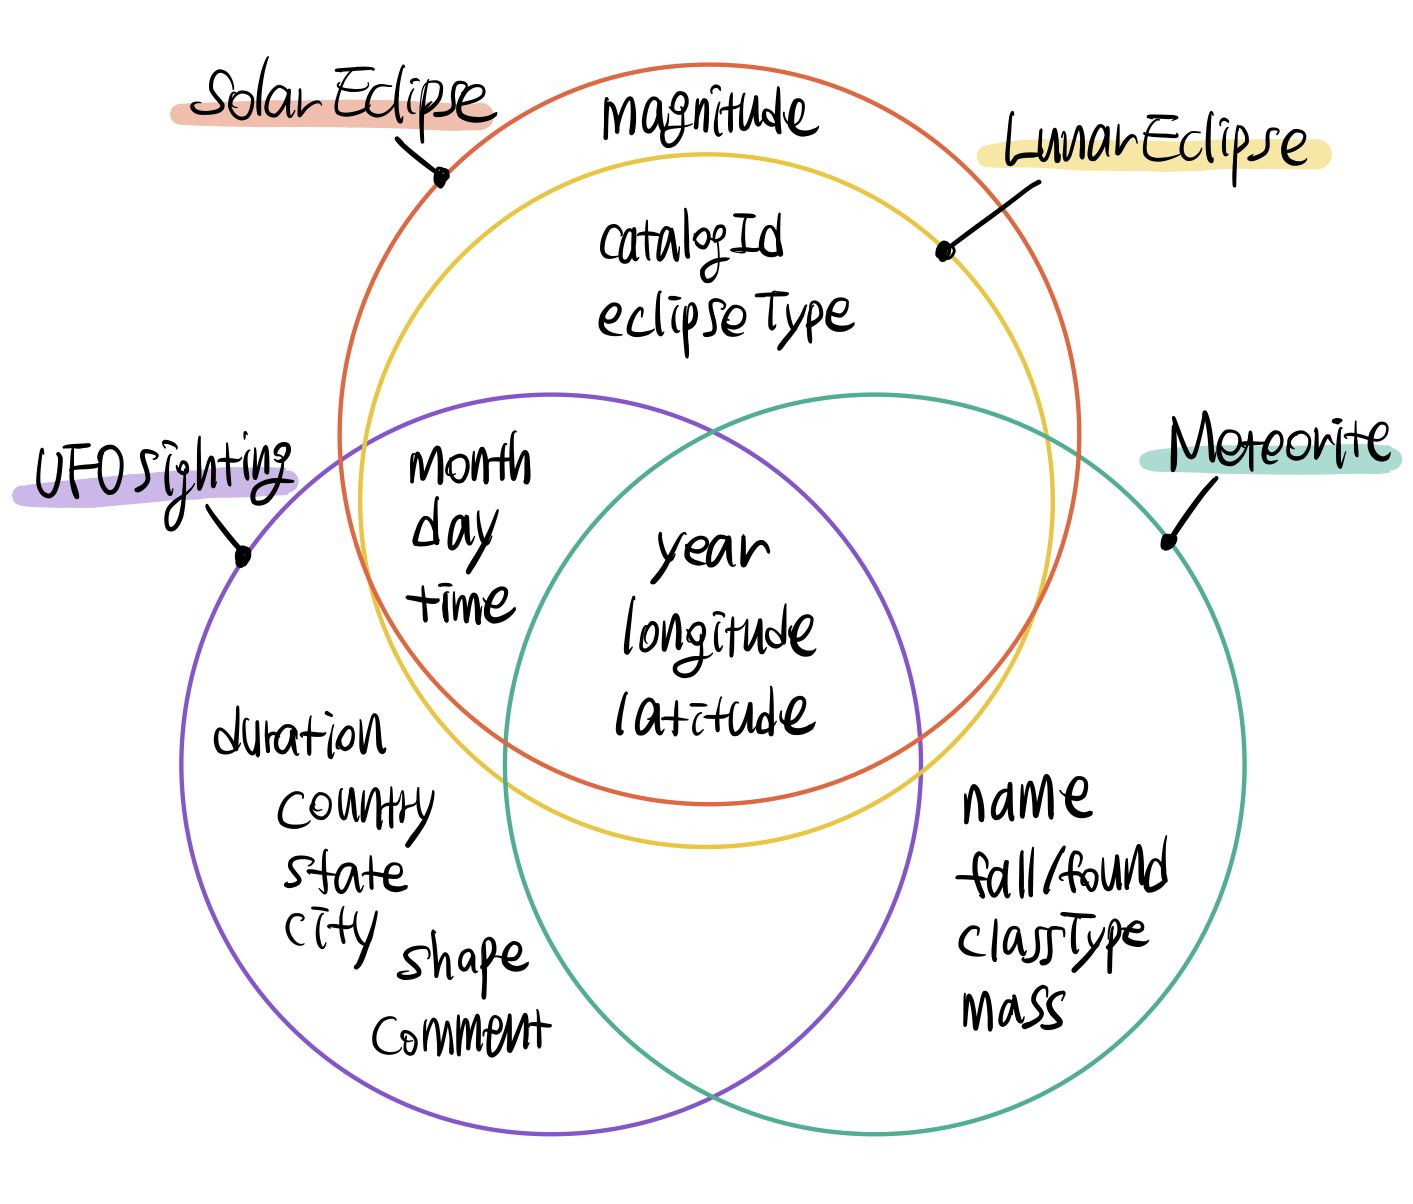 Solar Eclipse
magnitude
Lunar Eclipse
catalogId
eclipseType
UFO sighting
Meteorite
month
day
time
year
longitude
latitude
duration
country
state
city
shape
comment
name
fall/found
classType
mass